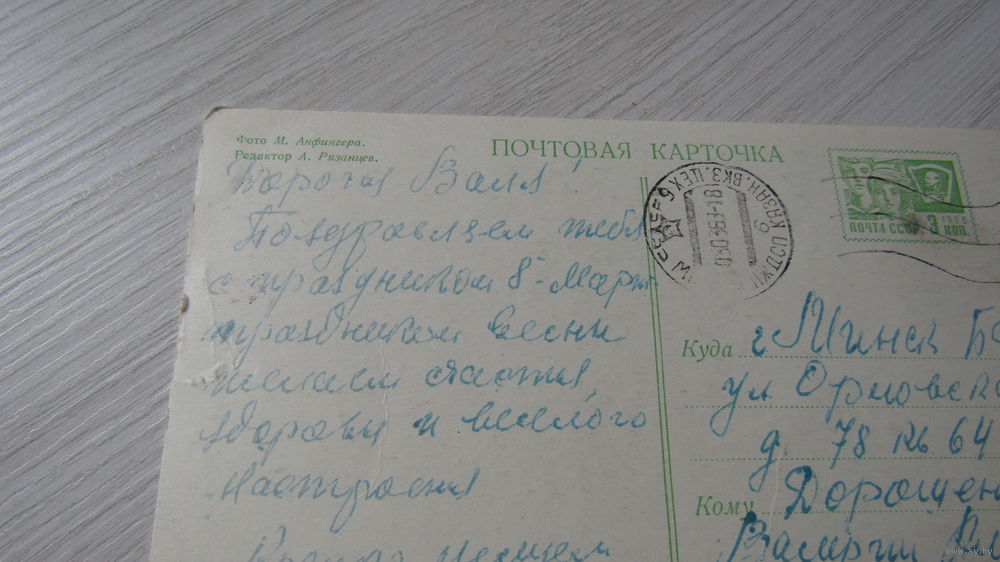 Фото М. Анфингера.
Редактор А. Рязанцев.
ПОЧТОВАЯ КАРТОЧКА
Дорогая Валя!
Поздравляем тебя
с праздником 8-Март
праздником весны
желаем счастия,
здоровья и веселого
настроения
желаем
ПОЧТА СССР
3 КОП.
Куда г Минск Б
ул Орловска
д 78 кв 64
Кому Дорошен
Валерии
www.ay.by